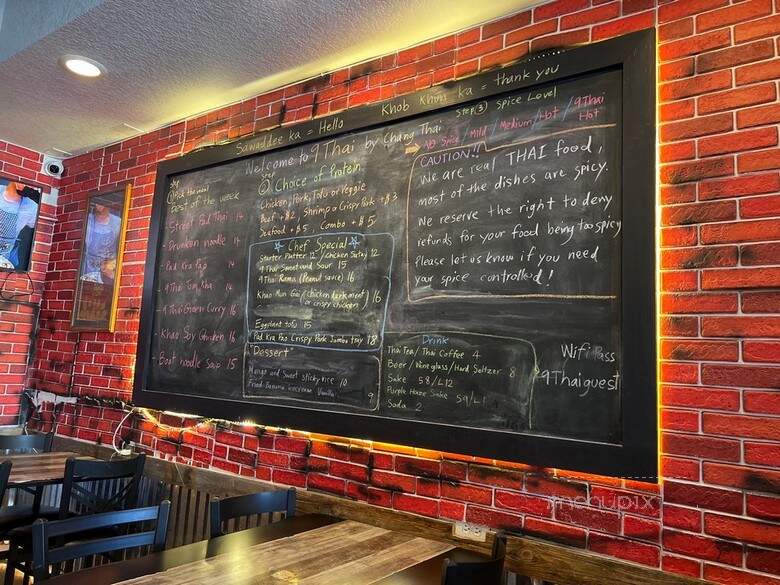 Sawaddee ka = Hello
Khob Khun ka = thank you
Welcome to 9 Thai by Chang Thai
Step
① Pick the meal
Best of the week
- Street Pad Thai 14
- Drunken noodle 14
- Pad Kra Pao 14
- 9Thai Tom Kha 14
- 9Thai Green Curry 16
- Khao Soy Chicken 16
- Boat noodle soup 15
Step
② Choice of Protein
Chicken, Pork, Tofu or Veggie
Beef + $2, Shrimp or Crispy Pork + $3
Seafood + $5, Combo + $5
Chef Special
Starter Platter 12 / chicken Satay 12
9 Thai Sweet and Sour 15
9 Thai Rama (Peanut sauce) 16
Khao Mun Gai (chicken dark meat) 16
or crispy chicken
Eggplant tofu 15
Pad Kra Pao Crispy Pork Jumbo tray 18
"Dessert"
Mango and Sweet sticky rice 10
Fried Banana icecream Vanilla 9
Step ③ Spice Level
No Spice / Mild / Medium / Hot / 9Thai Hot
CAUTION!!
We are real THAI food,
most of the dishes are spicy.
We reserve the right to deny
refunds for your food being too spicy
Please let us know if you need
your spice controlled!
Drink
Thai Tea / Thai Coffee 4
Beer / Wine glass / Hard Seltzer 8
Sake S8/L12
Purple Haze Sake S9/L1
Soda 2
Wifi Pass
9Thaiguest
menupix